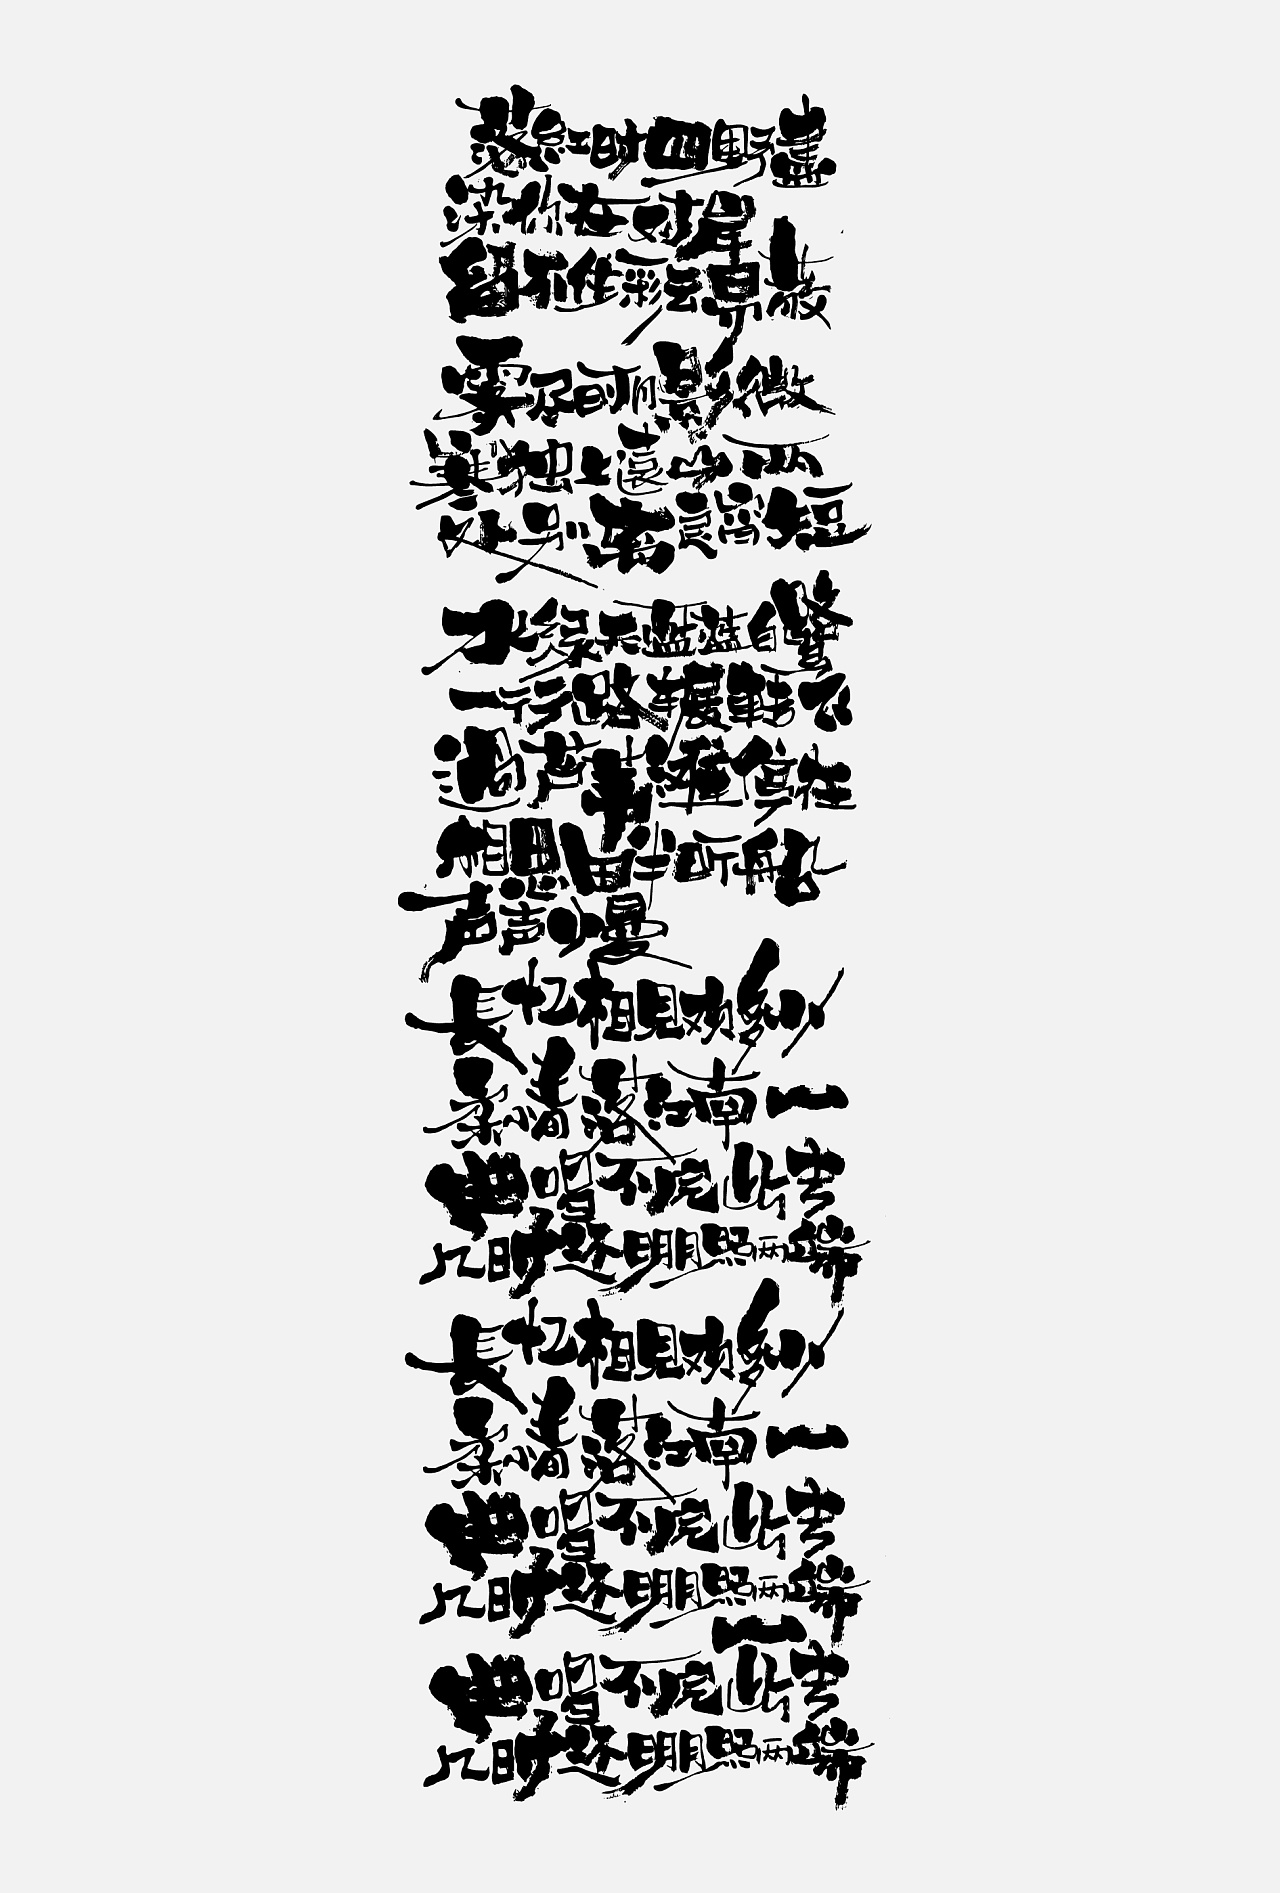 落紅时四野盡
染你在对岸
留不住彩云易散
雾尽时月影微
寒独上遠山两
处别离良宵短
水绿天蓝蓝白鹭
一行路辗转飞
過芦苇滩停在
相思畔听船
声声慢
長忆相見欢多少
柔情落江南一
曲唱不完此去
几时还明月照两端
長忆相見欢多少
柔情落江南一
曲唱不完此去
几时还明月照两端
一
曲唱不完此去
几时还明月照两端